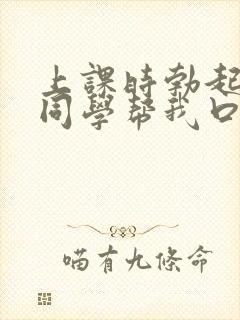 上課時勃起
同學幫我口
喵有九條命